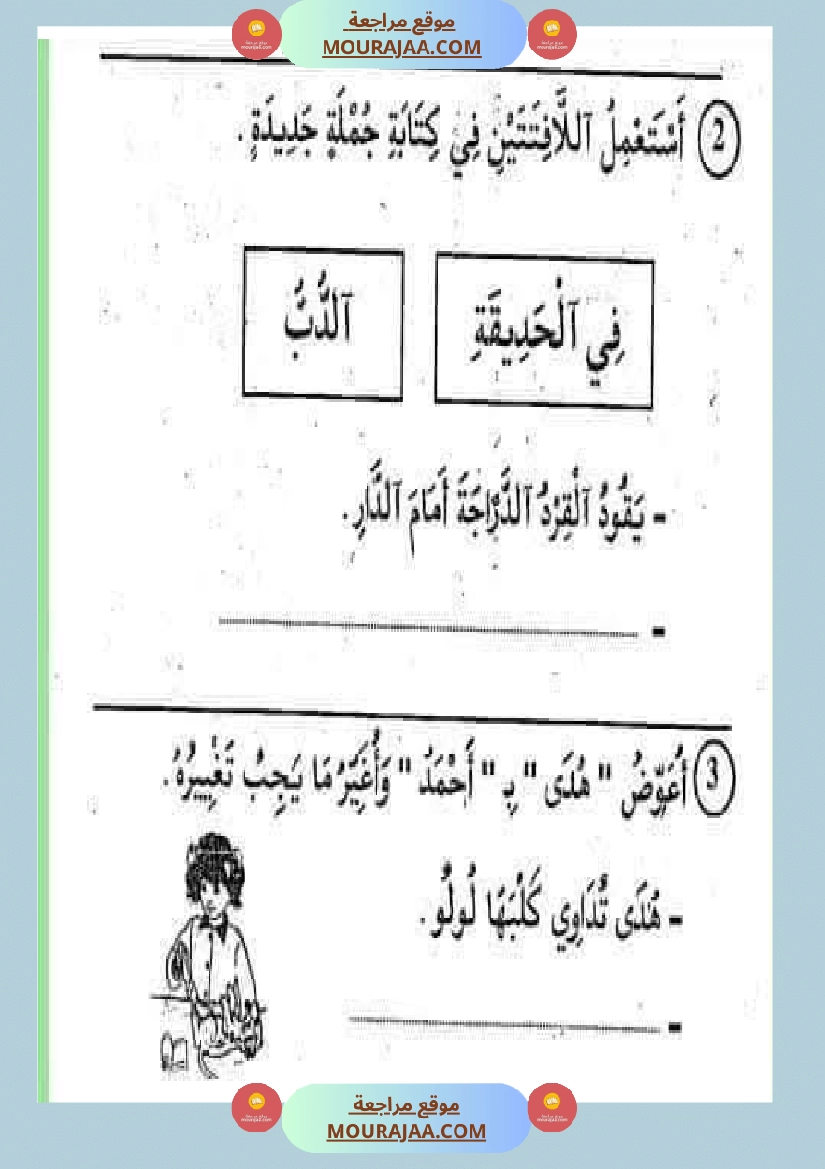 موقع مراجعة
MOURAJAA.COM
2 أَسْتَعْمِلُ ٱللَّافِتَتَيْنِ فِي كِتَابَةِ جُمْلَةٍ جَدِيدَةٍ .
فِي ٱلْحَدِيقَةِ
ٱلدُّبُّ
- يَقُودُ ٱلْقِرْدُ ٱلدَّرَّاجَةَ أَمَامَ ٱلدَّارِ .
-
3 أُعَوِّضُ " هُدَى " بِـ " أَحْمَدُ " وَأُغَيِّرُ مَا يَجِبُ تَغْيِيرُهُ .
- هُدَى تُدَاوِي كَلْبَهَا لُولُو .
-
موقع مراجعة
MOURAJAA.COM